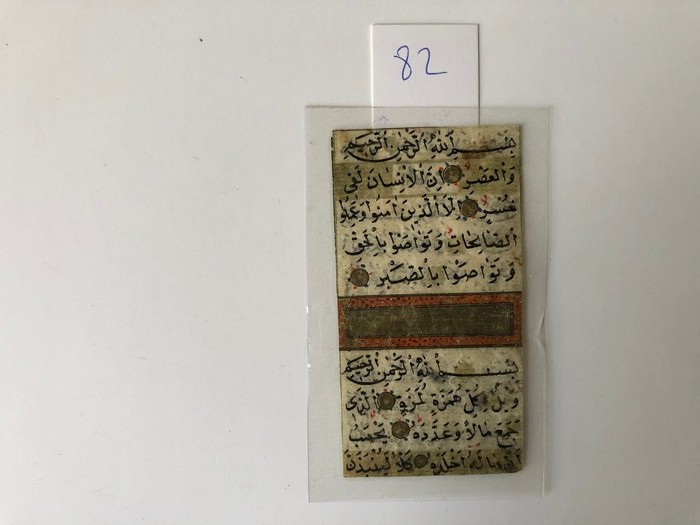 82
بسم الله الرحمن الرحيم
والعصر ان الانسان لفى
خسر الا الذين امنوا وعملوا
الصالحات وتواصوا بالحق
وتواصوا بالصبر
بسم الله الرحمن الرحيم
ويل لكل همزة لمزة الذى
جمع مالا وعدده يحسب
ان ماله اخلده كلا لينبذن